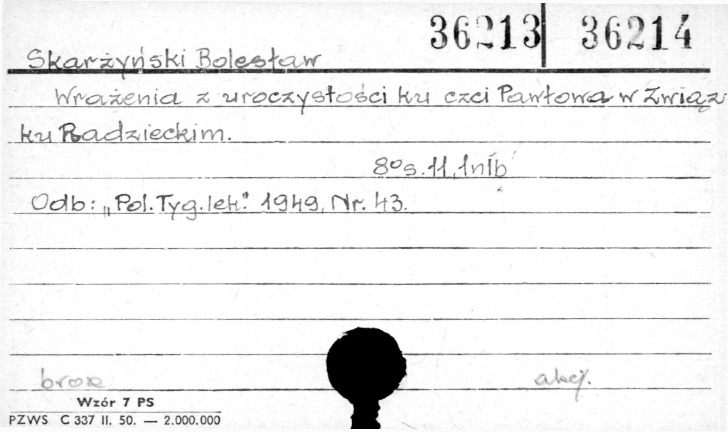 36213 36214
Skarżyński Bolesław
Wrażenia z uroczystości ku czci Pawłowa w Związ-
ku Radzieckim.
8° s. 11, 1nlb
Odb: „Pol. Tyg. lek." 1949, Nr. 43.
akc.
Wzór 7 PS
PZWS C 337 II. 50. — 2.000.000